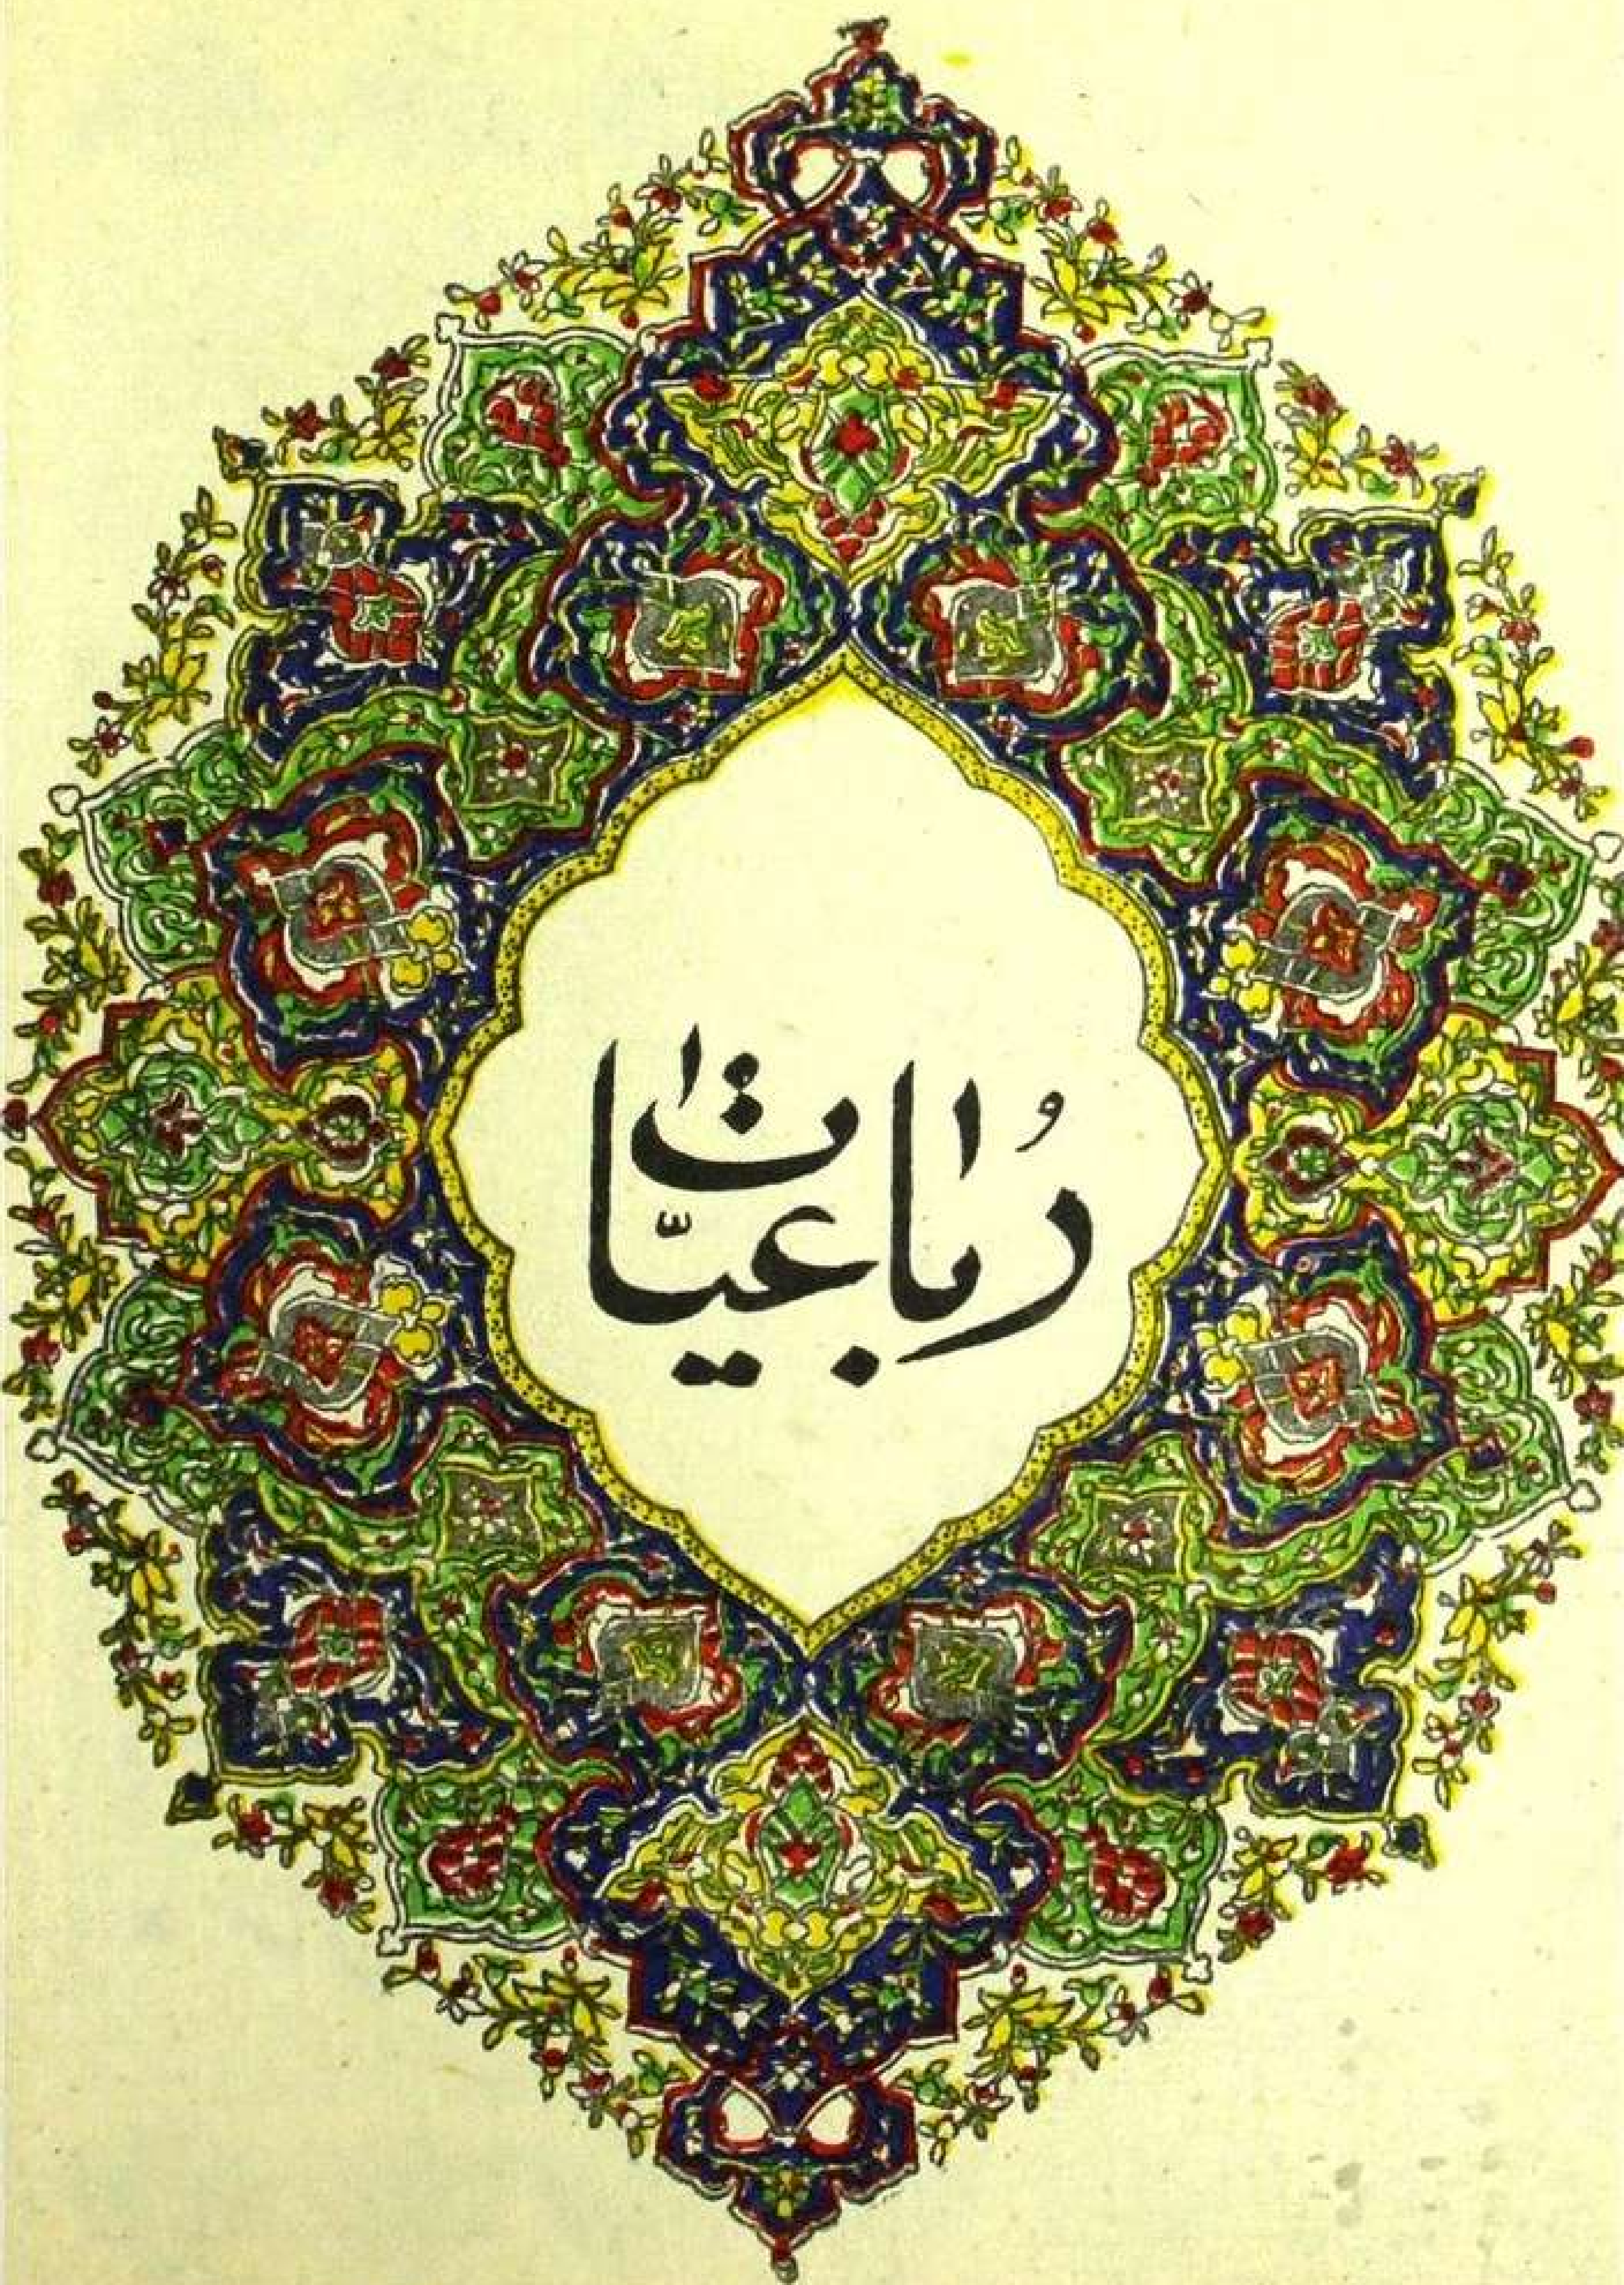 رُباعیّات